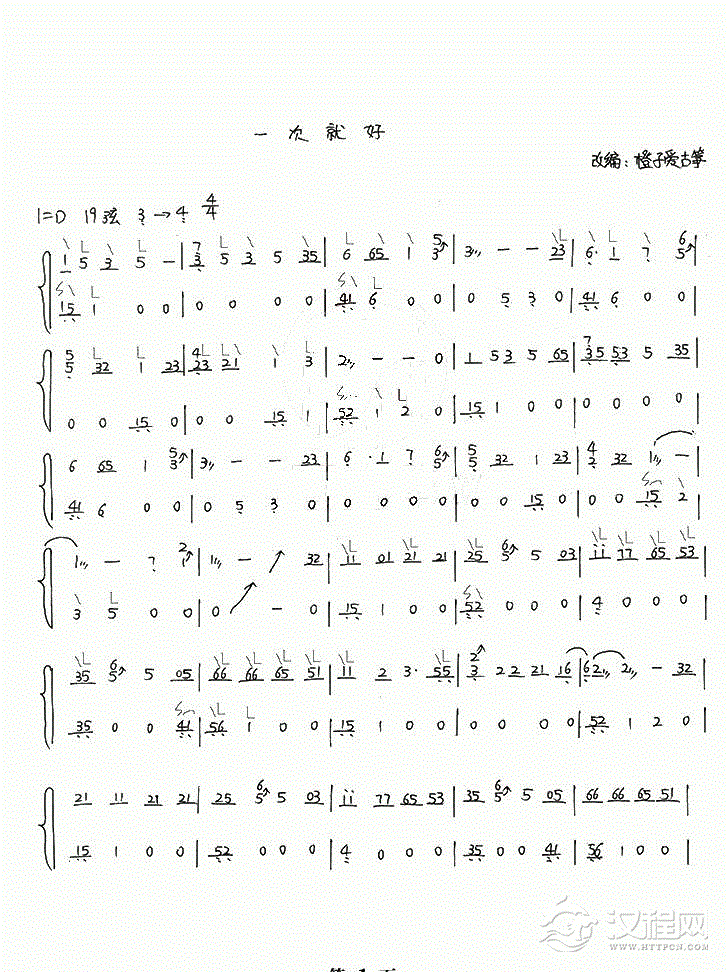 一次就好
改编：橙子爱古筝
1=D 19弦 3→4 4/4
1 5 3 5 - | 7 3 5 3 5 35 | 6 65 1 5 3 | 3 - - 23 | 6· 1 7 6 5
15 1 0 0 | 0 0 0 0 | 41 6 0 0 | 0 5 3 0 | 41 6 0 0
5 5 32 1 23 | 4 23 21 1 3 | 2 - - 0 | 1 53 5 65 | 7 35 53 5 35
0 0 15 0 | 0 0 15 1 | 52 1 2 0 | 15 1 0 0 | 0 0 0 0
6 65 1 5 3 | 3 - - 23 | 6 · 1 7 6 5 | 5 5 32 1 23 | 4 2 32 1 -
41 6 0 0 | 0 5 3 0 | 0 0 0 0 | 0 0 15 0 | 0 0 15 2
1 - 7 2 1 | 1 - 32 | 11 01 21 21 | 25 6 5 5 03 | 11 77 65 53
3 5 0 0 | 0 - 0 | 15 1 0 0 | 52 0 0 0 | 4 0 0 0
35 6 5 5 05 | 66 66 65 51 | 11 2 3· 55 | 2 3 2 2 21 16 | 6 2 2 - 32
35 0 0 41 | 56 1 0 0 | 15 1 0 0 | 0 0 0 0 | 52 1 2 0
21 11 21 21 | 25 6 5 5 03 | 11 77 65 53 | 35 6 5 5 05 | 66 66 65 51
15 1 0 0 | 52 0 0 0 | 4 0 0 0 | 35 0 0 41 | 56 1 0 0
汉程网
HTTPCN.COM